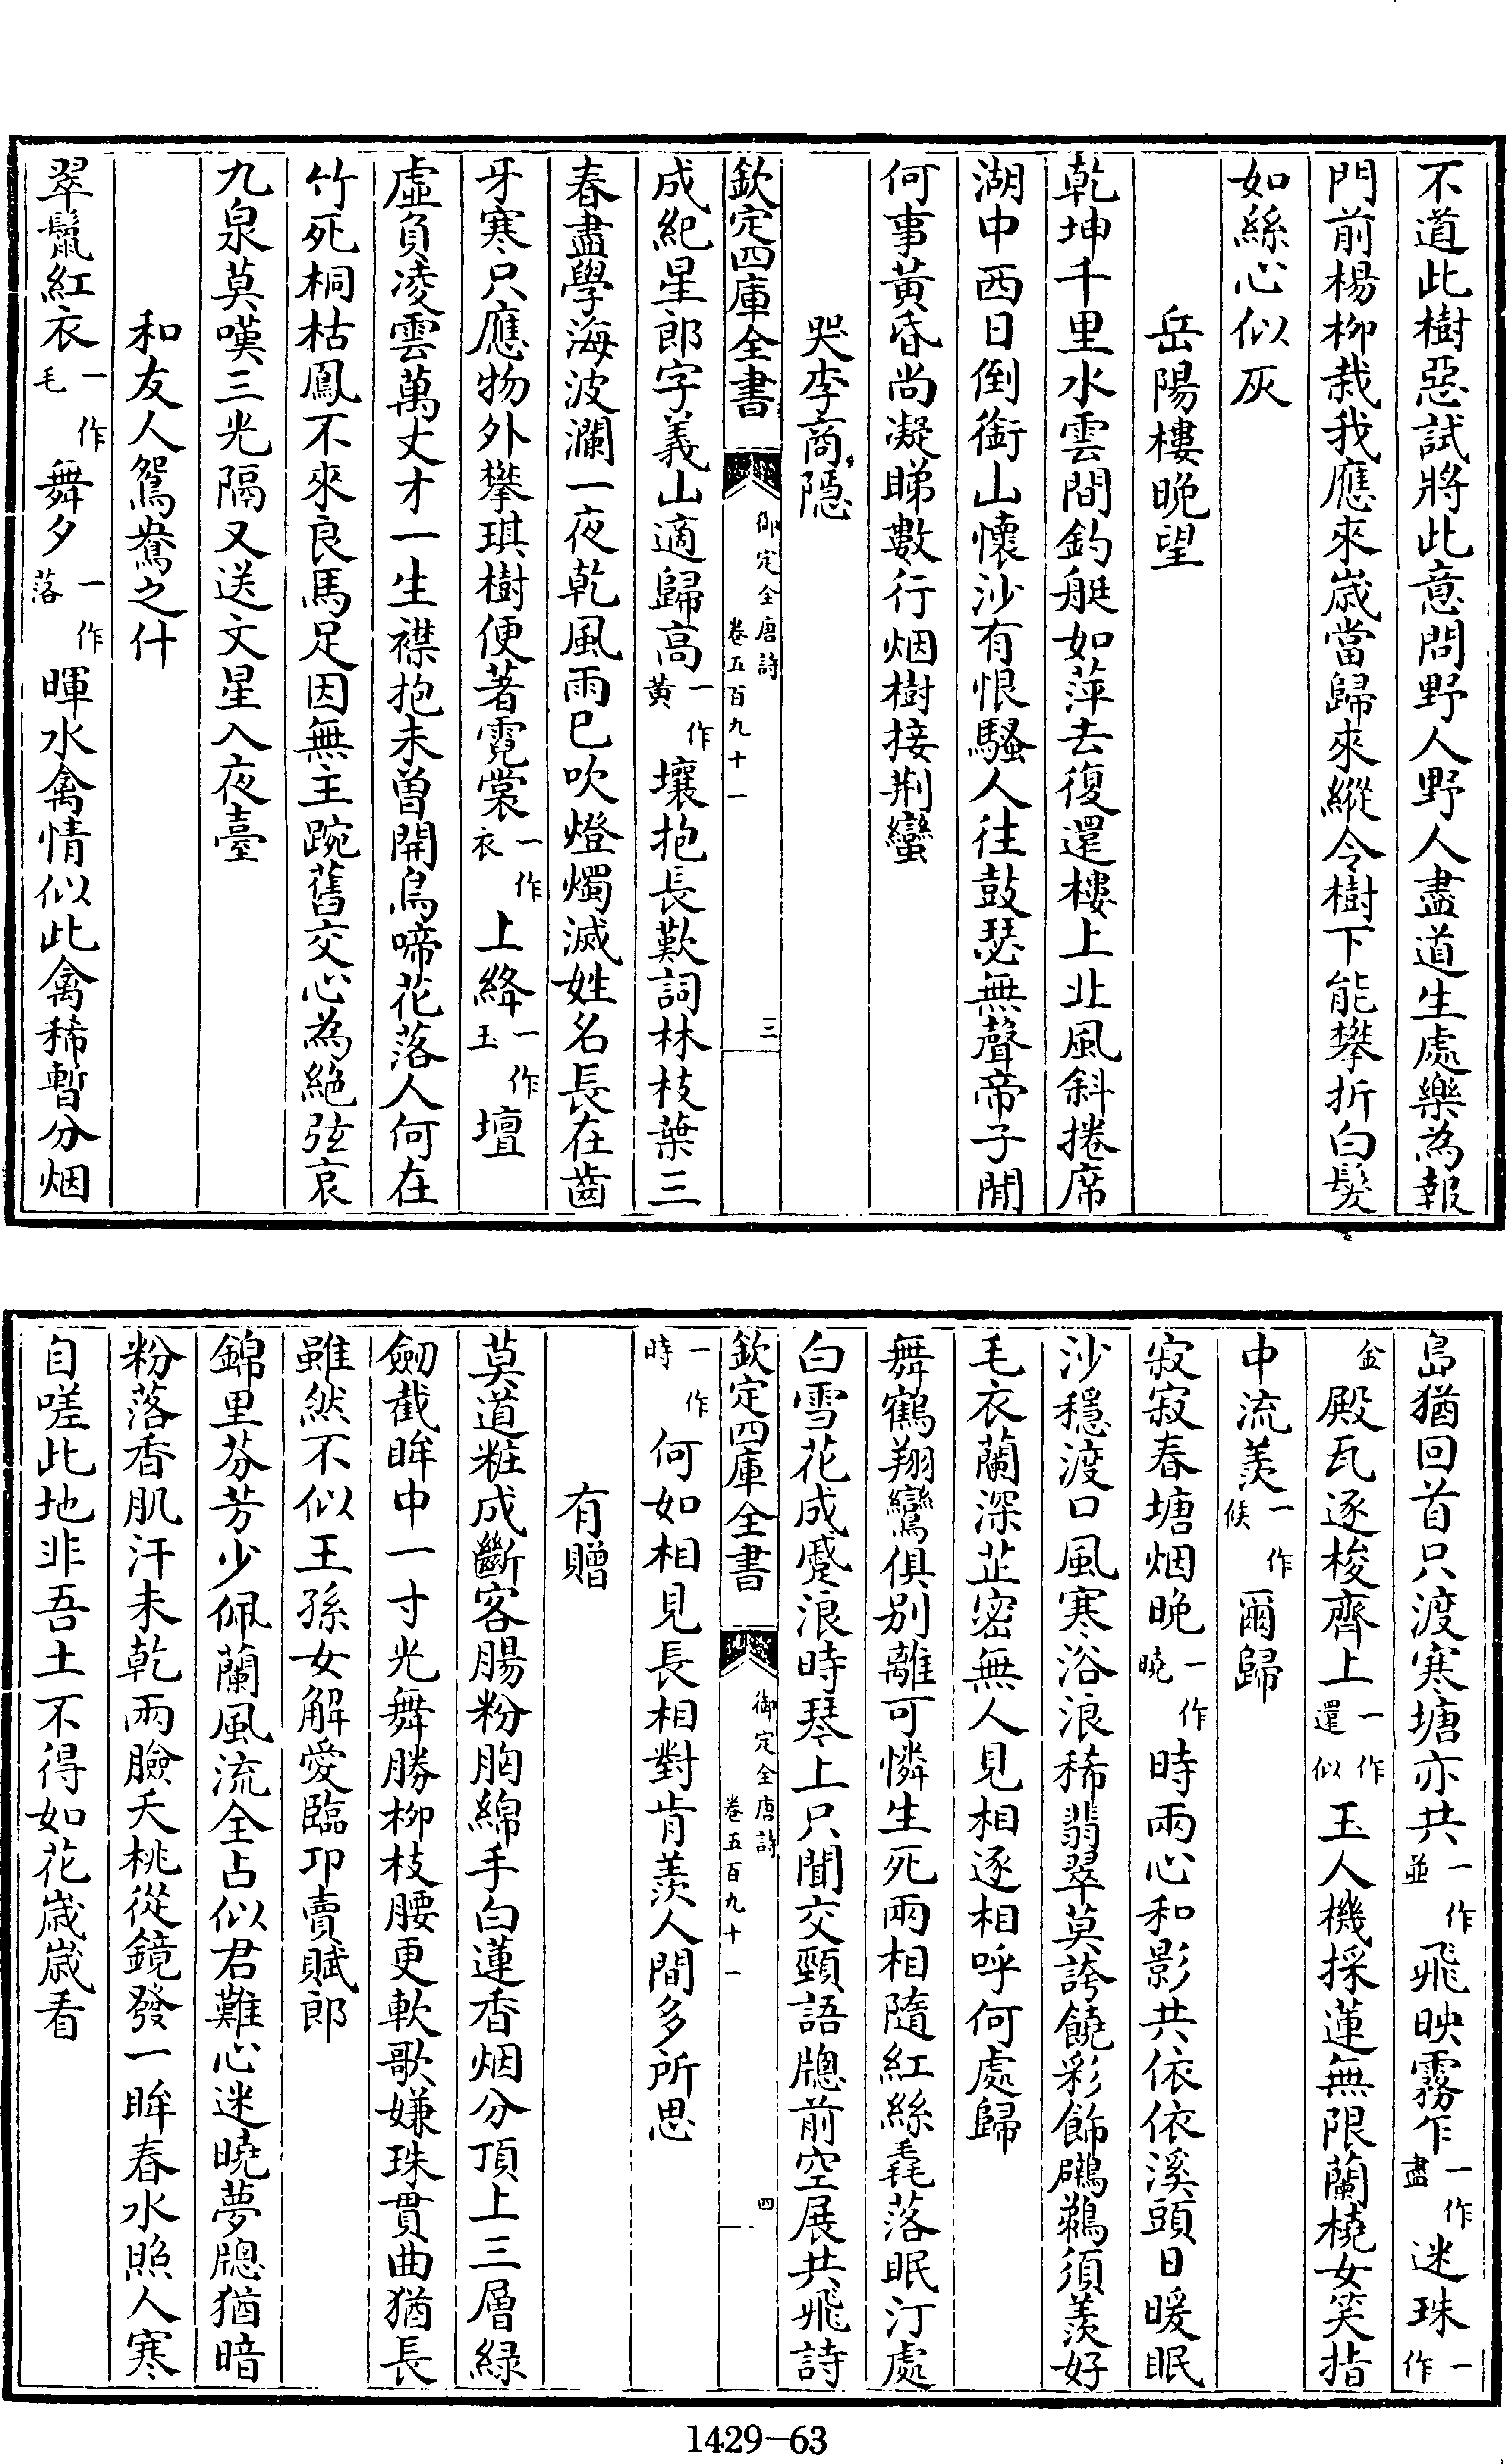 不道此樹惡試將此意問野人野人盡道生處樂為報
門前楊柳栽我應來歲當歸來縱令樹下能攀折白髮
如絲心似灰
岳陽樓晚望
乾坤千里水雲間釣艇如萍去復還樓上北風斜捲席
湖中西日倒銜山懷沙有恨騷人往鼓瑟無聲帝子閒
何事黃昏尚凝睇數行烟樹接荆蠻
哭李商隱
欽定四庫全書 御定全唐詩 卷五百九十一 三
成紀星郎字義山適歸高一作黃壤抱長歎詞林枝葉三
春盡學海波瀾一夜乾風雨已吹燈燭滅姓名長在齒
牙寒只應物外攀琪樹便著霓裳一作衣上絳一作玉壇
虛負凌雲萬丈才一生襟抱未曾開鳥啼花落人何在
竹死桐枯鳳不來良馬足因無主踠舊交心為絶弦哀
九泉莫嘆三光隔又送文星入夜臺
和友人鴛鴦之什
翠鬛紅衣一作毛舞夕一作落暉水禽情似此禽稀暫分烟
島猶回首只渡寒塘亦共一作並飛映霧乍一作盡迷珠一作
金殿瓦逐梭齊上一作還似玉人機採蓮無限蘭橈女笑指
中流羨一作候爾歸
寂寂春塘烟晚一作曉時兩心和影共依依溪頭日暖眠
沙穩渡口風寒浴浪稀翡翠莫誇饒彩飾鸊鵜須羨好
毛衣蘭深芷密無人見相逐相呼何處歸
舞鶴翔鸞俱别離可憐生死兩相隨紅絲毳落眠汀處
白雪花成蹙浪時琴上只聞交頸語牎前空展共飛詩
欽定四庫全書 御定全唐詩 卷五百九十一 四
一作時何如相見長相對肯羨人間多所思
有贈
莫道粧成斷客腸粉胸綿手白蓮香烟分頂上三層緑
劒截眸中一寸光舞勝柳枝腰更軟歌嫌珠貫曲猶長
雖然不似王孫女解愛臨卭賣賦郎
錦里芬芳少佩蘭風流全占似君難心迷曉夢牎猶暗
粉落香肌汗未乾兩臉夭桃從鏡發一眸春水照人寒
自嗟此地非吾土不得如花歲歲看
1429—63